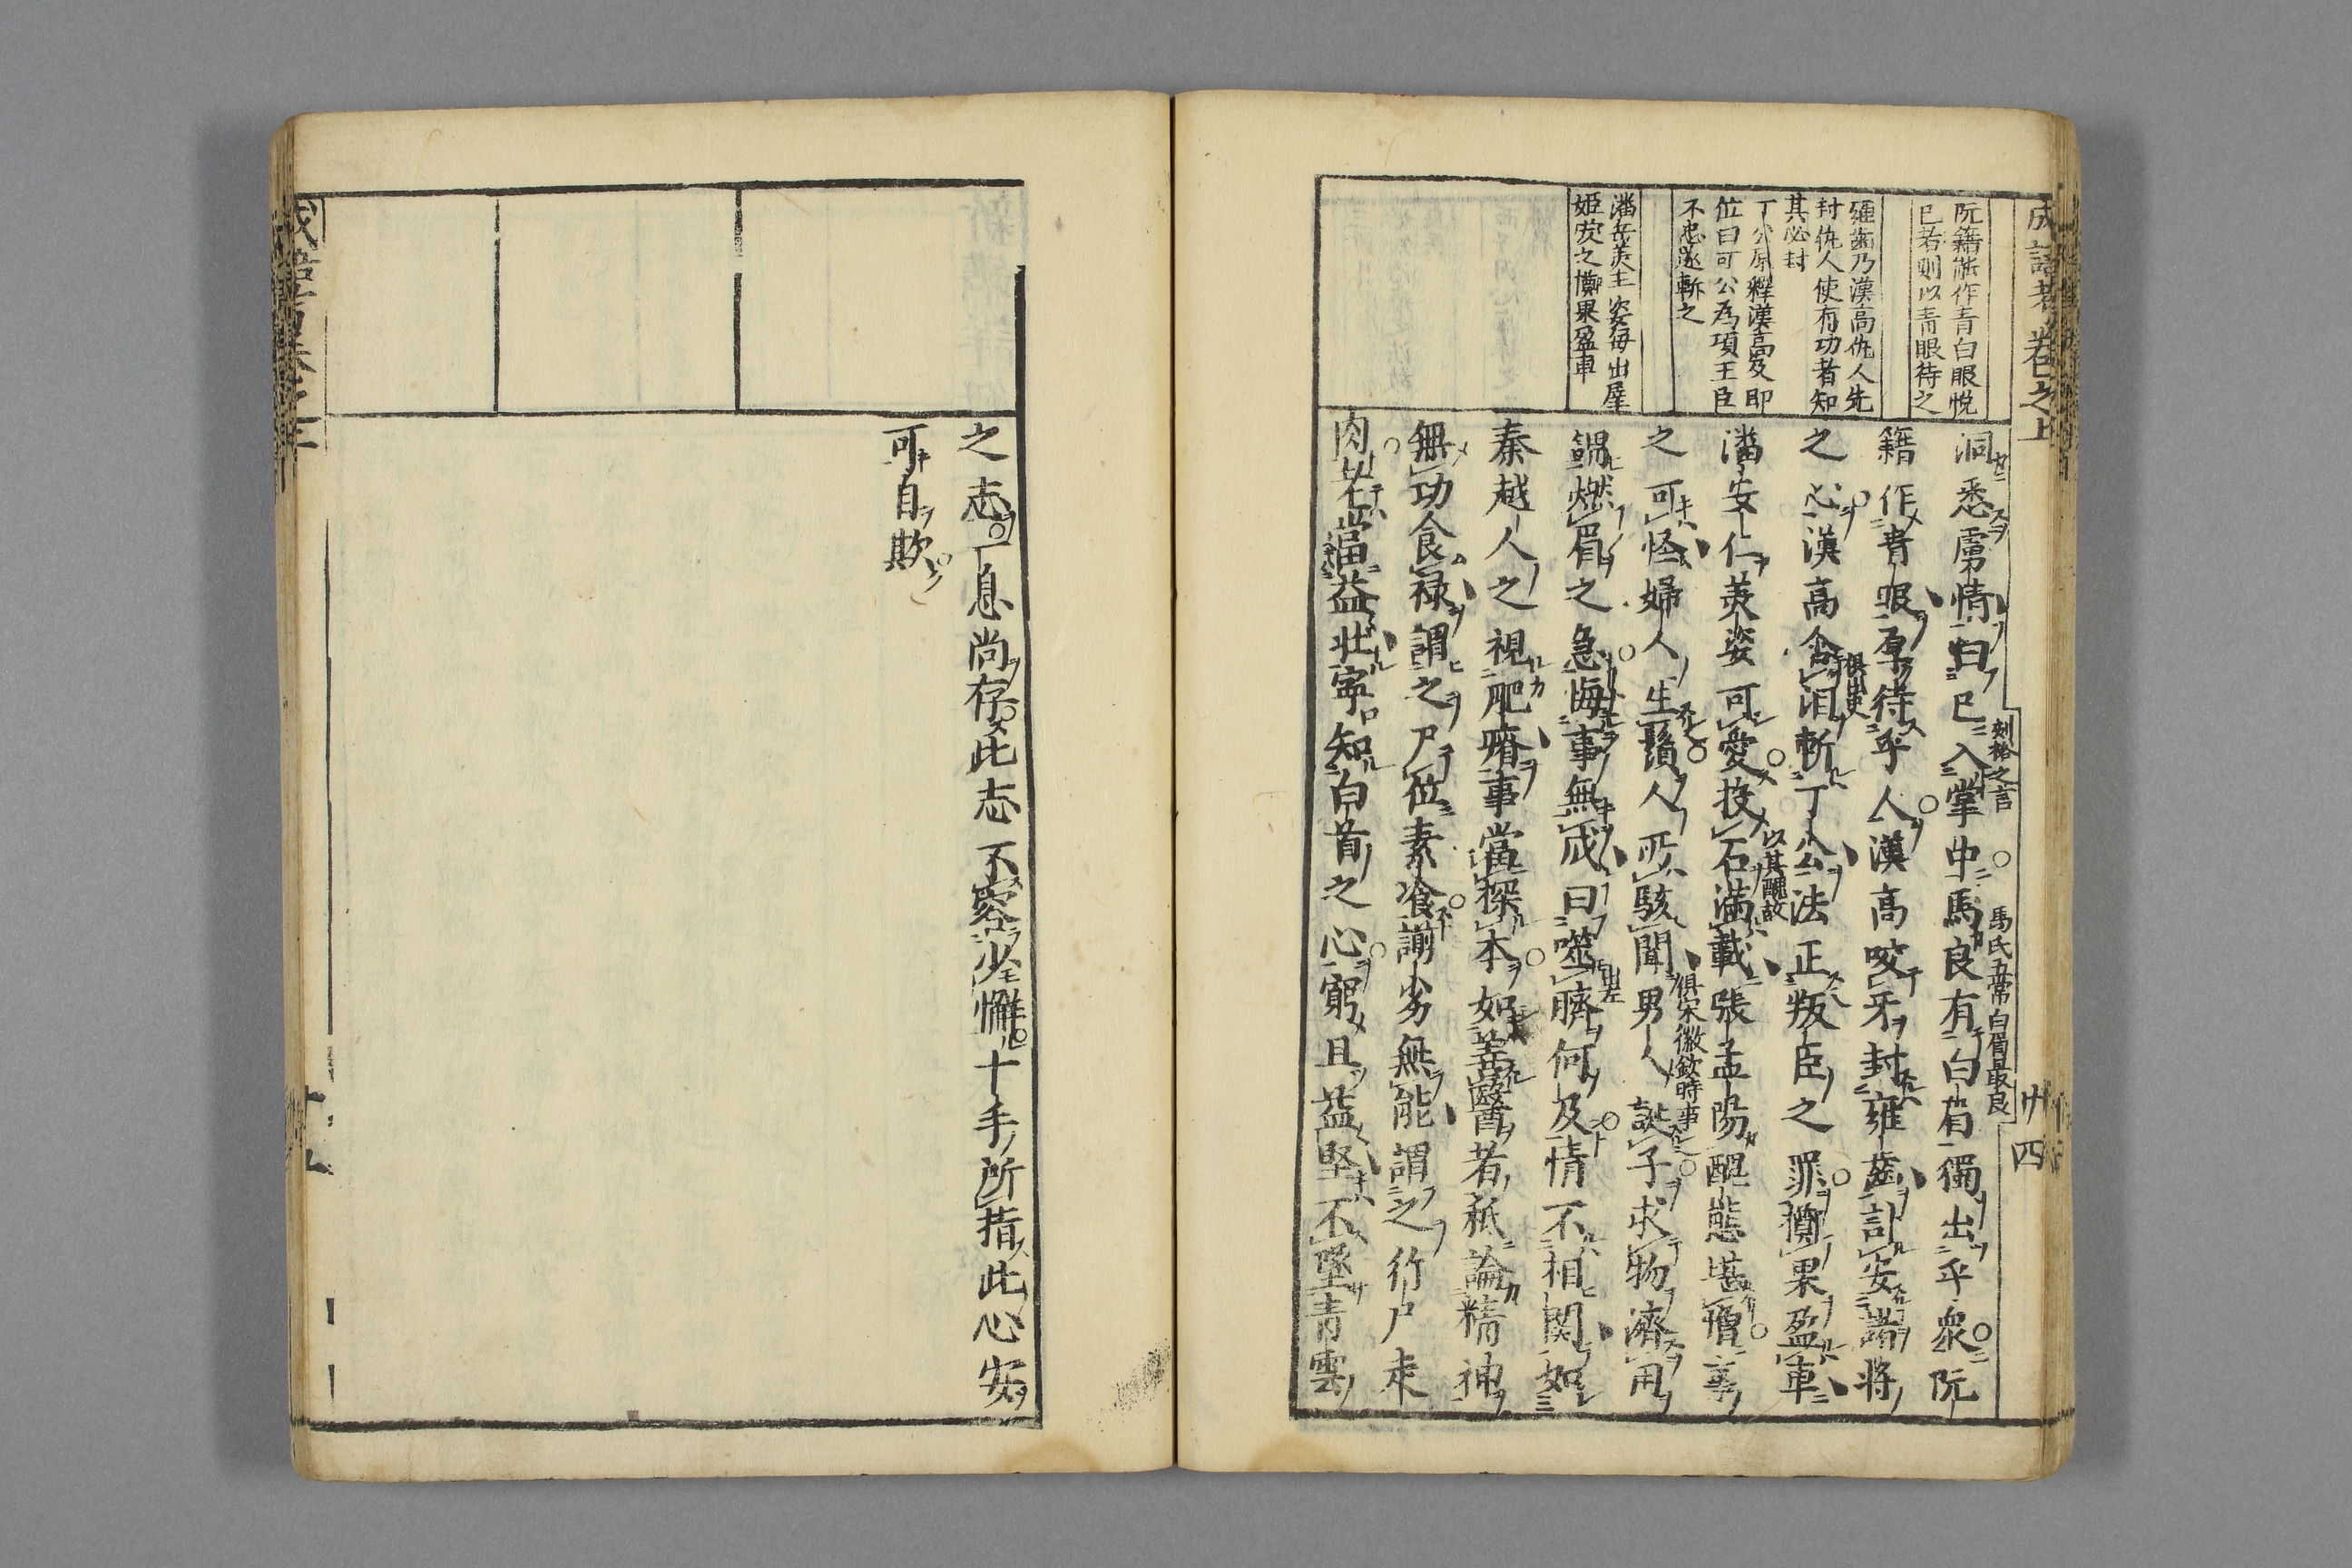 成語考卷之上
廿四
阮籍能作青白眼悅
已者則以青眼待之
雍齒乃漢高仇人先
封仇人使有功者知
其必封
丁公原釋漢高及即
位曰可公為項王臣
不忠遂斬之
潘岳美主姿每出屋
姬女之擲果盈車
洞悉虜情曰已入掌中馬良有白眉獨出乎衆阮
刻格之言
馬氏五常白眉最良
籍作青眼厚待乎人漢高咬牙封雍齒計安諸將
之心漢高含泪斬丁公法正叛臣之罪擲果盈車
俱出史
潘安仁美姿可愛投石滿載張孟陽醜態堪憎事
以其醜故
之可怪婦人生鬚人所駭聞男人誕子求物濟用
俱宋徽欽時事
謂燃眉之急悔事無成曰噬臍何及情不相関如
出左
秦越人之視肥瘠事當探本如善醫者秪論精神
無功食禄謂之尸位素飡譾劣無能謂之行尸走
肉老當益壯寜知白首之心窮且益堅不墜青雲
之志一息尚存此志不容少懈十手所指此心安
可自欺